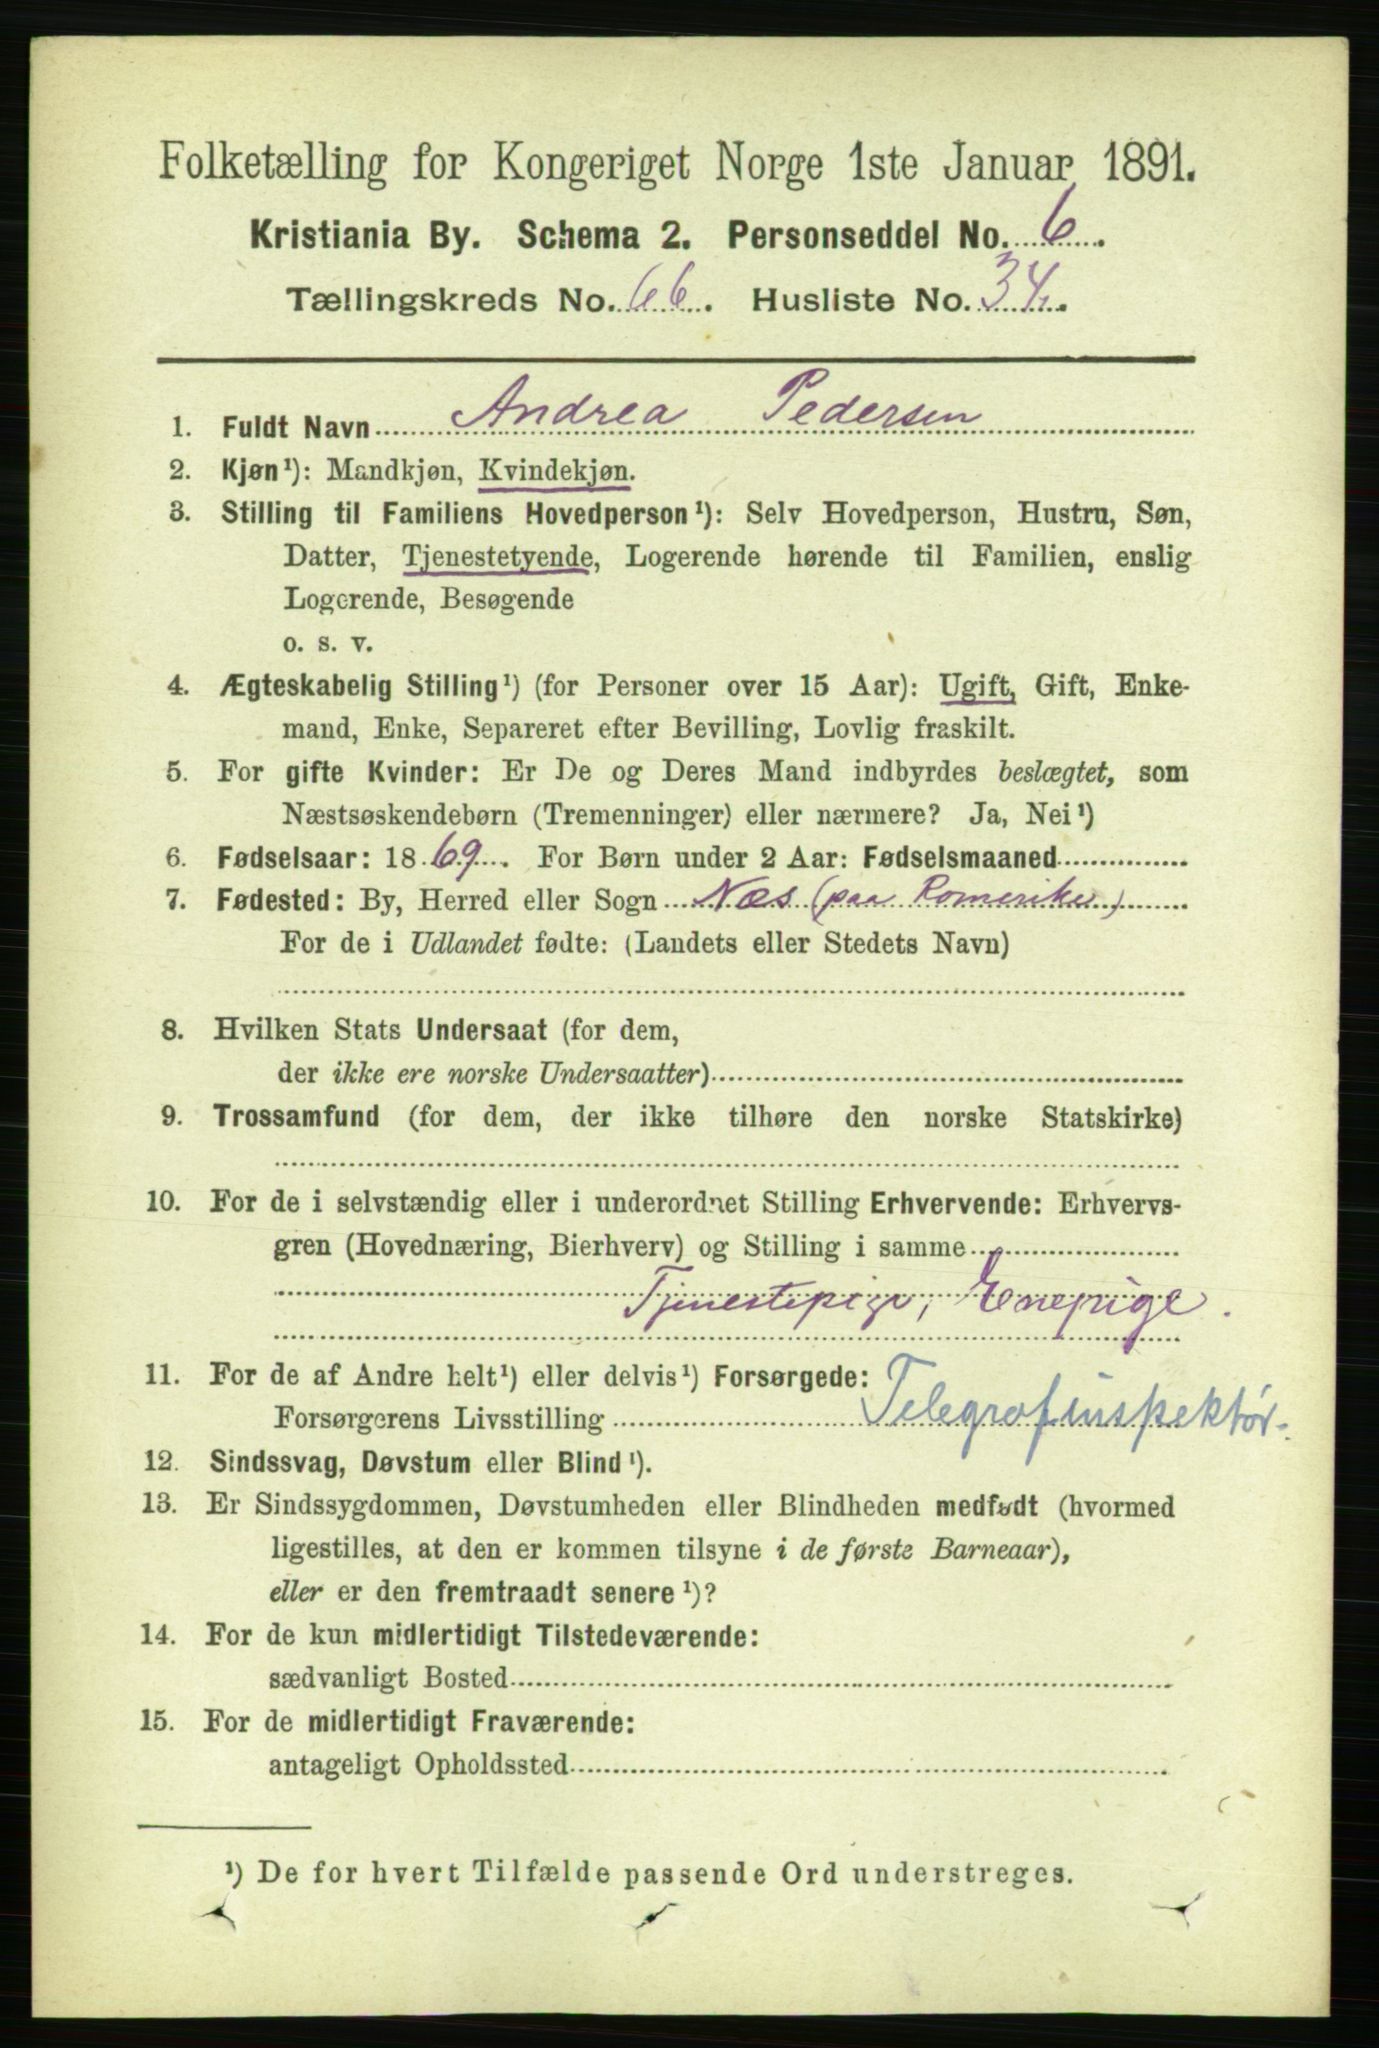 Folketælling for Kongeriget Norge 1ste Januar 1891.
Kristiania By. Schema 2. Personseddel No. 6.
Tællingskreds No. 66. Husliste No. 34.
1. Fuldt Navn Andrea Pedersen
2. Kjøn¹): Mandkjøn, Kvindekjøn.
3. Stilling til Familiens Hovedperson¹): Selv Hovedperson, Hustru, Søn,
Datter, Tjenestetyende, Logerende hørende til Familien, enslig
Logerende, Besøgende
o. s. v.
4. Ægteskabelig Stilling¹) (for Personer over 15 Aar): Ugift, Gift, Enke-
mand, Enke, Separeret efter Bevilling, Lovlig fraskilt.
5. For gifte Kvinder: Er De og Deres Mand indbyrdes beslægtet, som
Næstsøskendebørn (Tremenninger) eller nærmere? Ja, Nei¹)
6. Fødselsaar: 1869. For Børn under 2 Aar: Fødselsmaaned
7. Fødested: By, Herred eller Sogn Næs (paa Romerike)
For de i Udlandet fødte: (Landets eller Stedets Navn)
8. Hvilken Stats Undersaat (for dem,
der ikke ere norske Undersaatter)
9. Trossamfund (for dem, der ikke tilhøre den norske Statskirke)
10. For de i selvstændig eller i underordnet Stilling Erhvervende: Erhvervs-
gren (Hovednæring, Bierhverv) og Stilling i samme
Tjenestepige, Enepige.
11. For de af Andre helt¹) eller delvis¹) Forsørgede:
Forsørgerens Livsstilling Telegrafinspektør.
12. Sindssvag, Døvstum eller Blind¹).
13. Er Sindssygdommen, Døvstumheden eller Blindheden medfødt (hvormed
ligestilles, at den er kommen tilsyne i de første Barneaar),
eller er den fremtraadt senere¹)?
14. For de kun midlertidigt Tilstedeværende:
sædvanligt Bosted
15. For de midlertidigt Fraværende:
antageligt Opholdssted
¹) De for hvert Tilfælde passende Ord understreges.